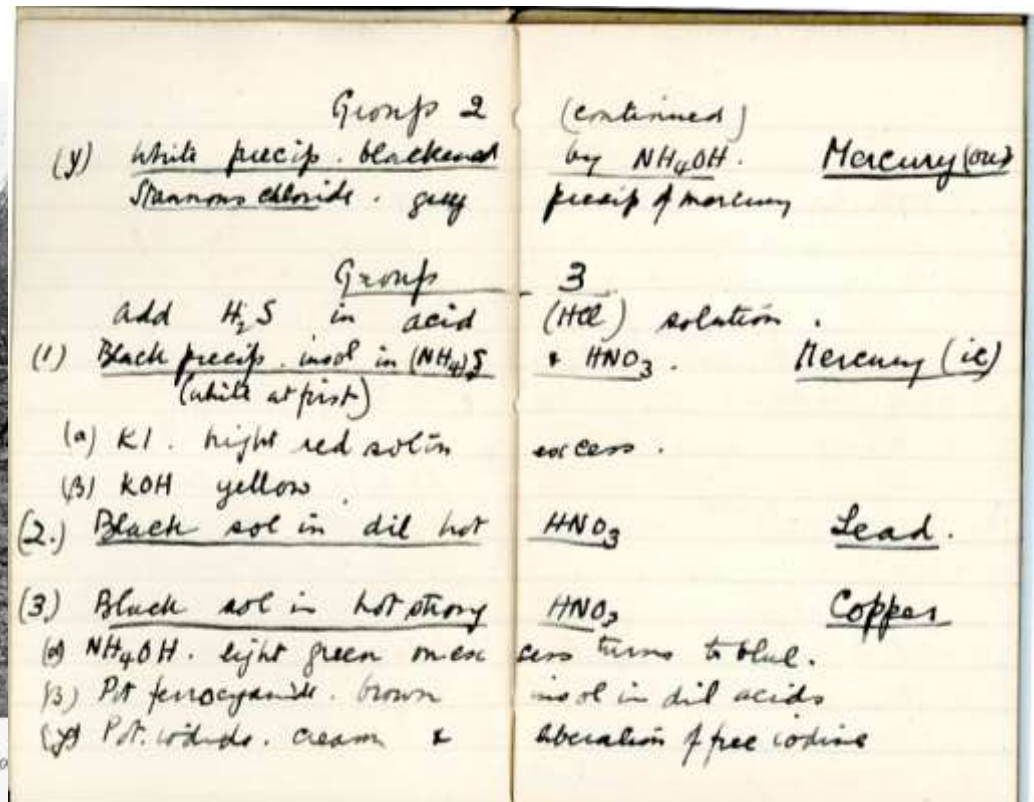 Group 2 (continued)
(γ) White precip. blackened by NH4OH. Mercury (ous)
Stannous chloride. grey precip of mercury
Group 3
add H2S in acid (HCl) solution.
(1) Black precip. insol in (NH4)2S & HNO3. Mercury (ic)
(white at first)
(α) KI. bright red sol in excess.
(β) KOH yellow.
(2.) Black sol in dil hot HNO3 Lead.
(3) Black sol in hot strong HNO3 Copper
(α) NH4OH. light green on excess turns to blue.
(β) Pot ferrocyanide. brown insol in dil acids
(γ) Pot. iodide. cream & liberation of free iodine